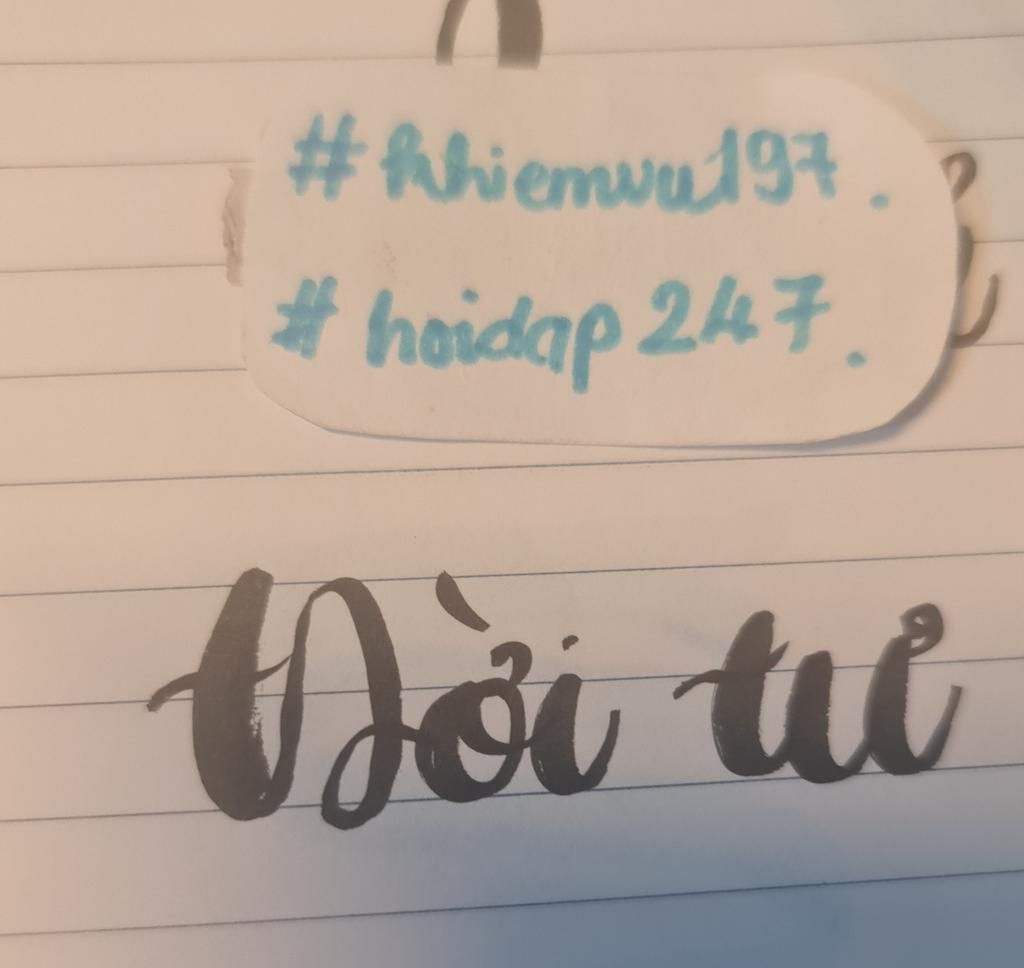 #Nhiemvu197.
#hoidap247.
Đời tư